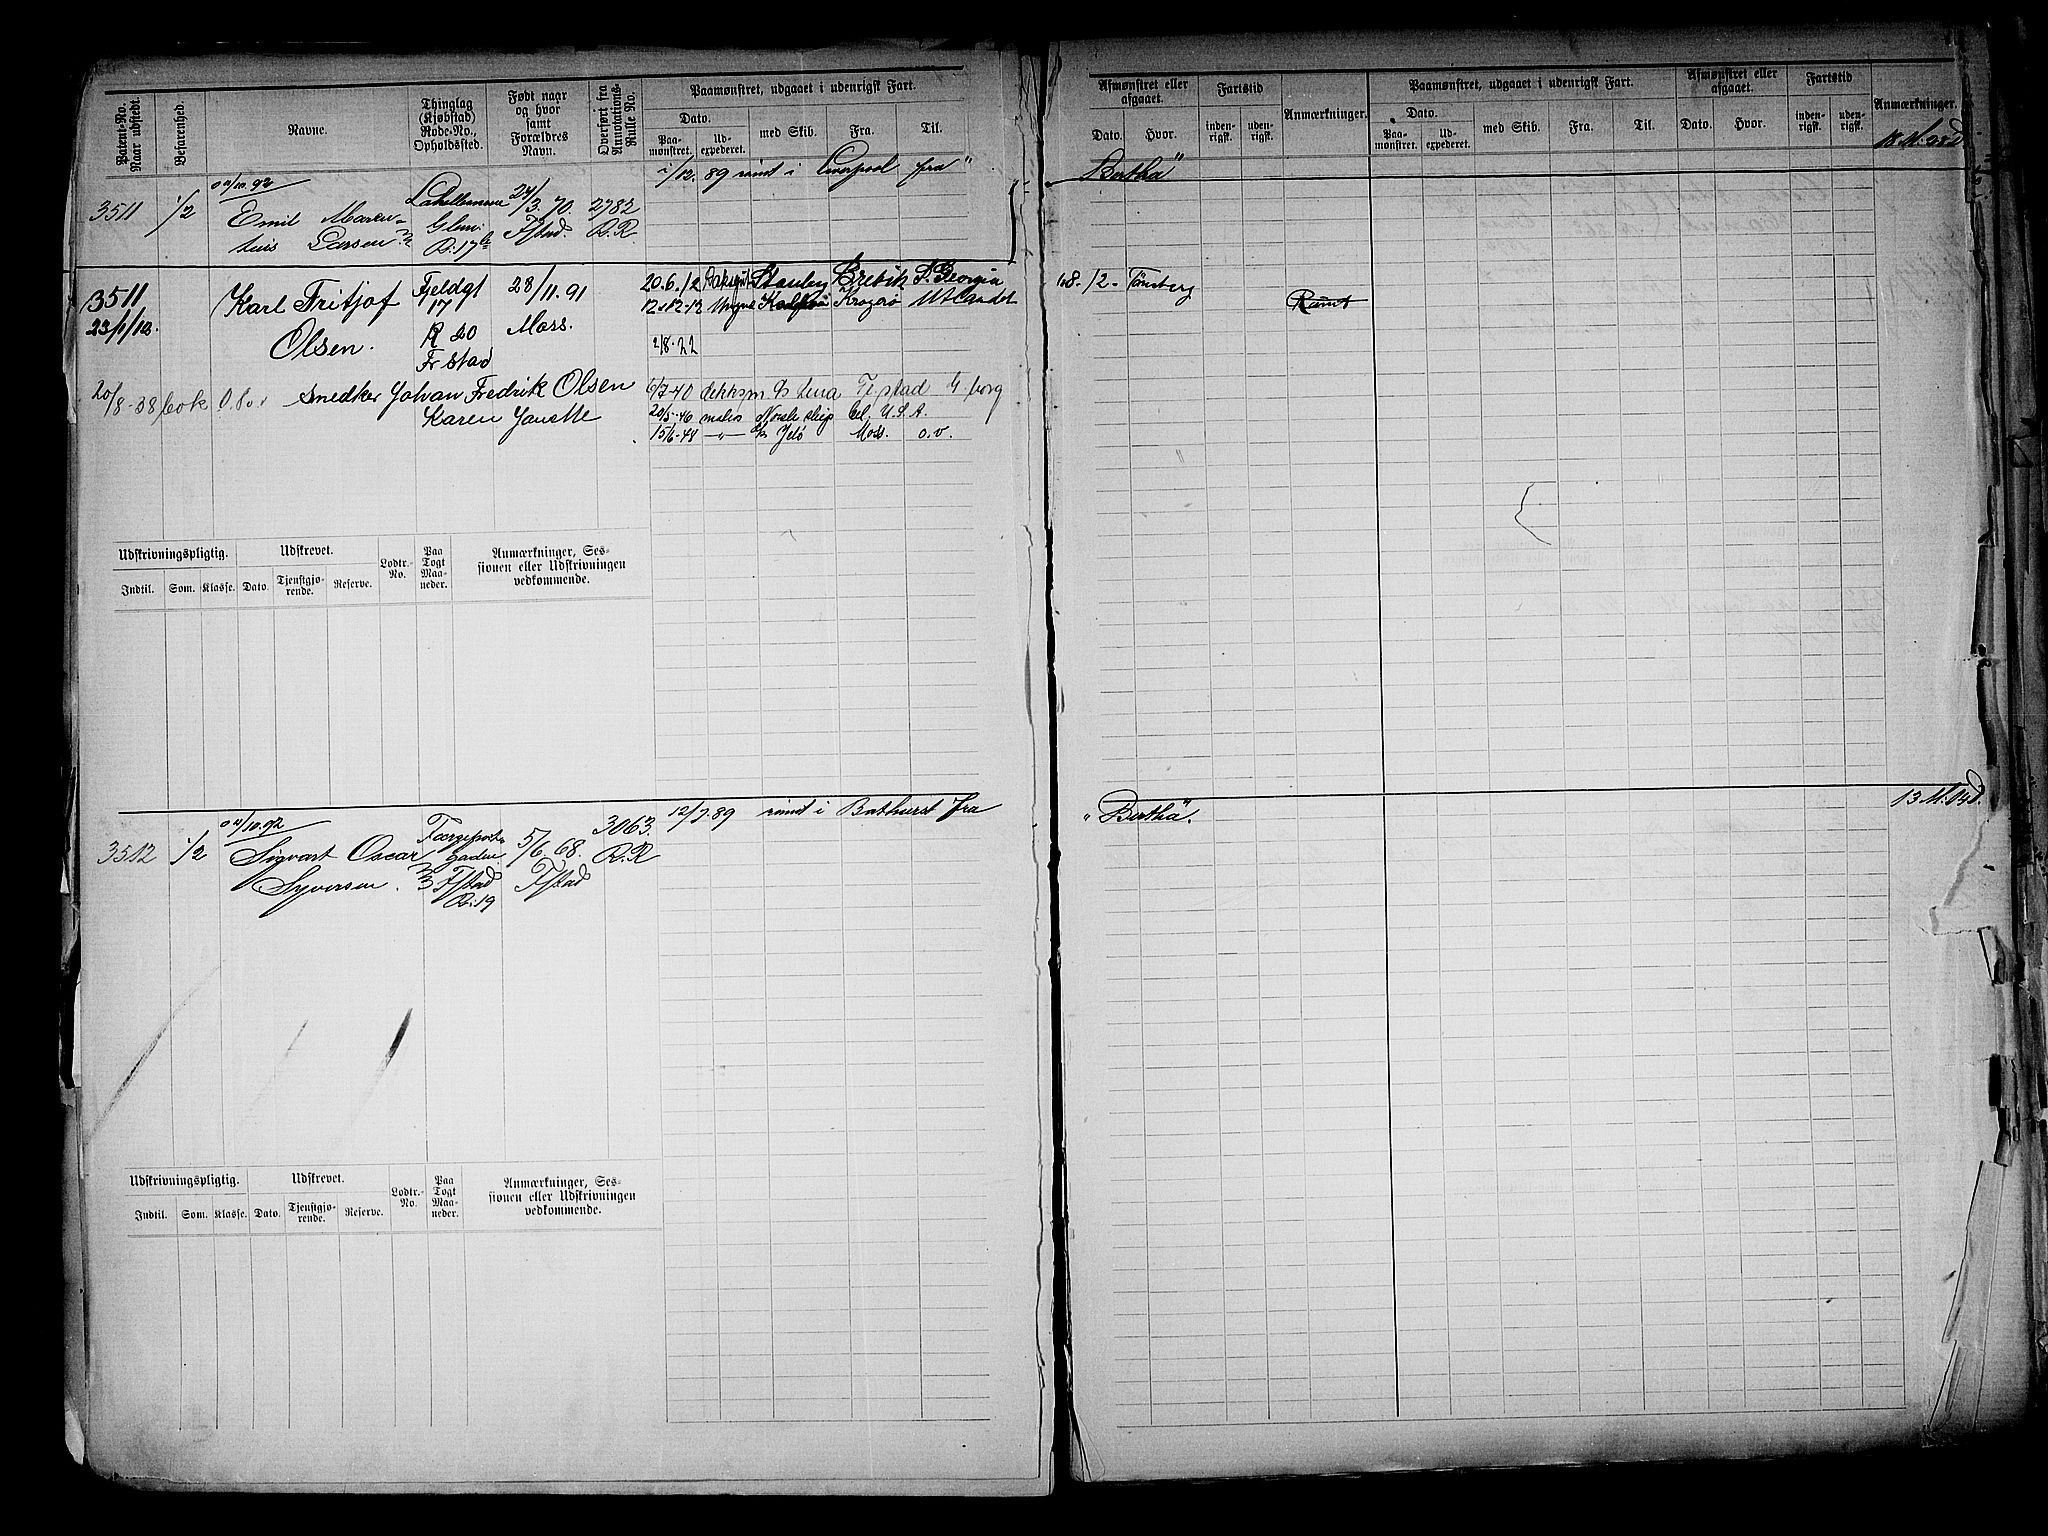 Patent-No. Naar udstedt.
Befarenhed.
Navne.
Thinglag (Kjøbstad) Rode-No., Opholdssted.
Født naar og hvor samt Forældres Navn.
Overført fra Annotations-Rulle No.
Paamønstret, udgaaet i udenrigsk Fart.
Dato.
Paa-mønstret.
Ud-expederet.
med Skib.
Fra.
Til.
Afmønstret eller afgaaet.
Dato.
Hvor.
Fartstid
inden-rigsk.
uden-rigsk.
Anmærkninger.
Paamønstret, udgaaet i udenrigsk Fart.
Dato.
Paa-mønstret.
Ud-expederet.
med Skib.
Fra.
Til.
Afmønstret eller afgaaet.
Dato.
Hvor.
Fartstid
inden-rigsk.
uden-rigsk.
Anmærkninger.
/12. 89 rømt i Liverpool fra "
Bertha"
3511 1/2
Emil Maren-
tius Larsen
Glem.
R: 17
24/3. 70.
Fstad.
2782
R. R
3511
23/1/12.
Karl Fritjof
Olsen.
Fjeldgt
17
R 20
Fr stad
28/11. 91
Moss.
20.6./12 Stauberg Brevik S. Georgia
/2- Tønsberg
Kragerø Utlandet
Rømt
2/8. 22
20/8-38 bok
Snedker Johan Fredrik Olsen
Karen Janette
6/7-40 dekksm Lena Frstad G.borg
20/5-46 Norse skip U.S.A.
15/6-48 -"- Jelø Moss. o.v.
Udskrivningspligtig.
Udskrevet.
Lodtr.-No.
Paa Togt Maa-neder.
Anmærkninger, Ses-
sionen eller Udskrivningen
vedkommende.
Indtil. Som. Klasse. Dato. Tjenstgjø-rende. Reserve.
3512 1/2
Sigvart Oscar
Syversen.
Fstad
R: 19
5/6 68.
Fstad
3063.
R. R
12/7. 89 rømt i Bathurst fra
"Bertha".
13 M. 04 d.
Udskrivningspligtig.
Udskrevet.
Lodtr.-No.
Paa Togt Maa-neder.
Anmærkninger, Ses-
sionen eller Udskrivningen
vedkommende.
Indtil. Som. Klasse. Dato. Tjenstgjø-rende. Reserve.